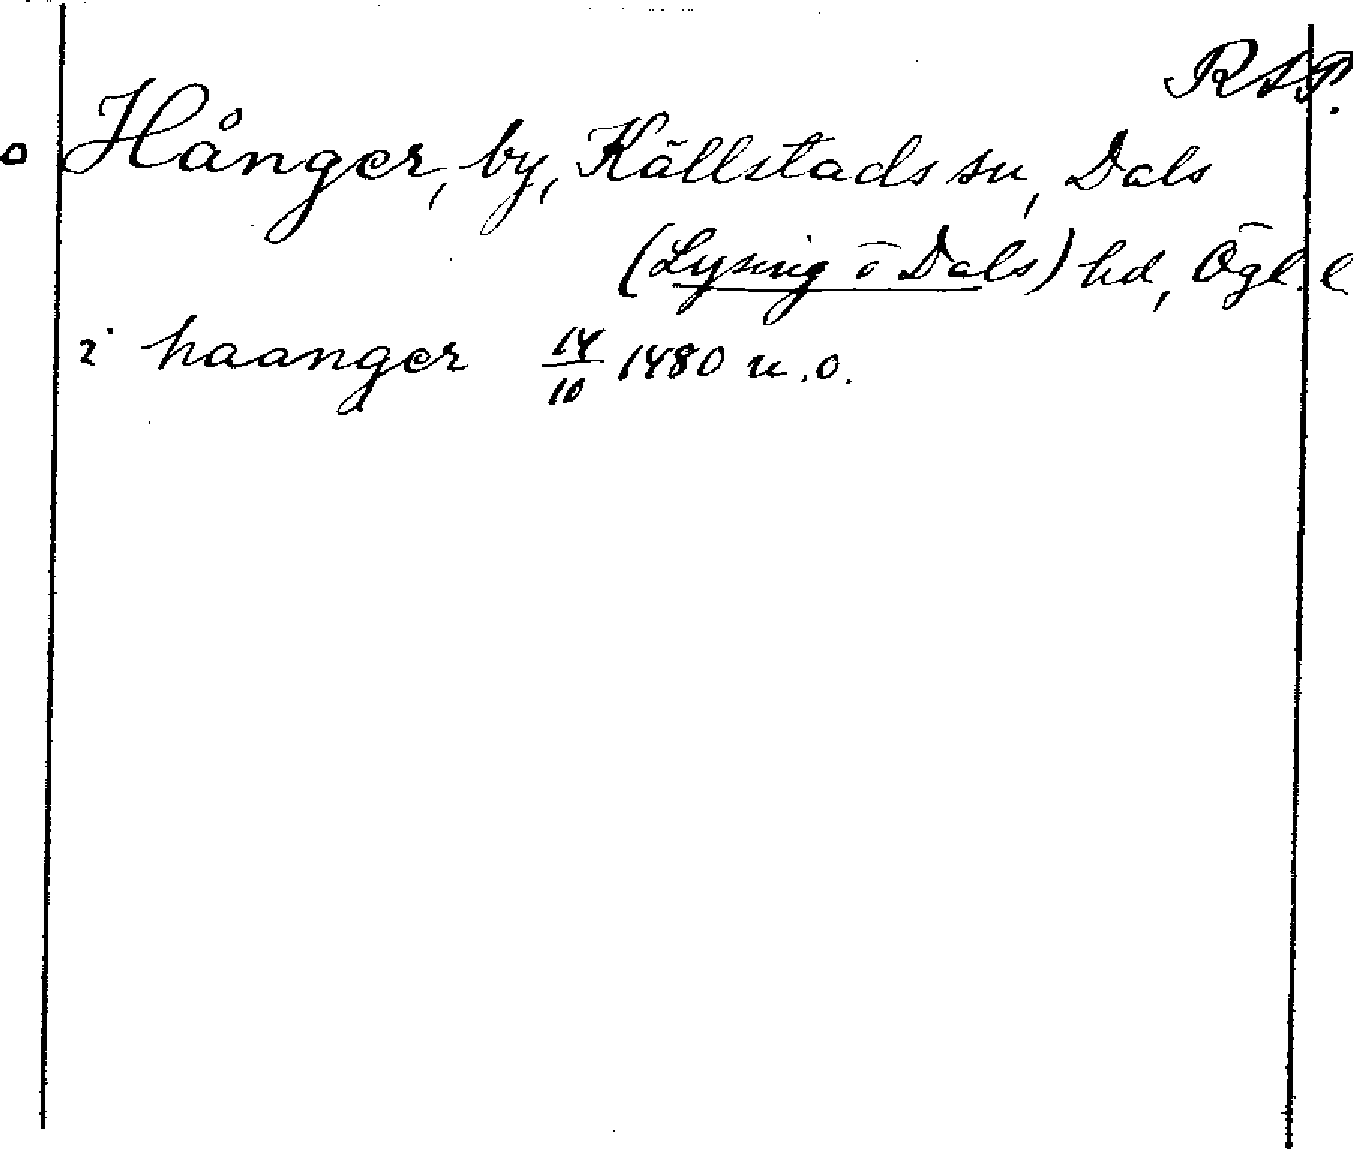 RAP.
Hånger, by, Källstads sn, Dals
(Lysing o Dals) hd, Ögl. l
i haanger 14/10 1480 u.o.